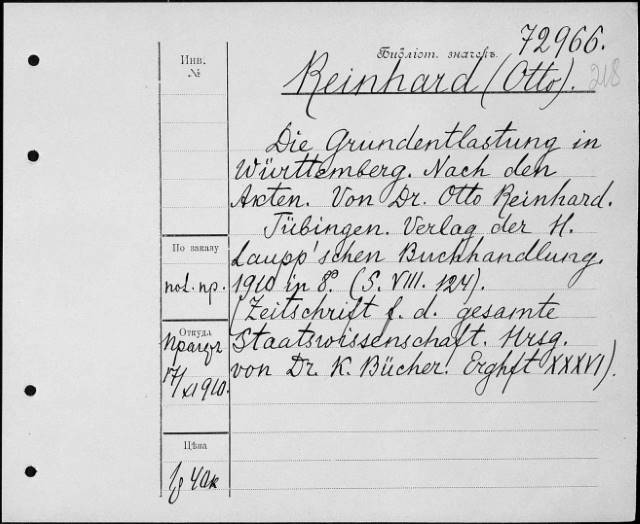 72966.
Библіот. значекъ.
Reinhard (Otto). 218
Инв.
№
Die Grundentlastung in
Württemberg. Nach den
Akten. Von Dr. Otto Reinhard.
Tübingen. Verlag der H.
Laupp'schen Buchhandlung.
1910 in 8°. (S. VIII. 124).
(Zeitschrift f. d. gesamte
Staatswissenschaft. Hrsg.
von Dr. K. Bücher. Erghft XXXVI).
По заказу
пол. пр.
Откуда
17/XI 1910.
Цѣна